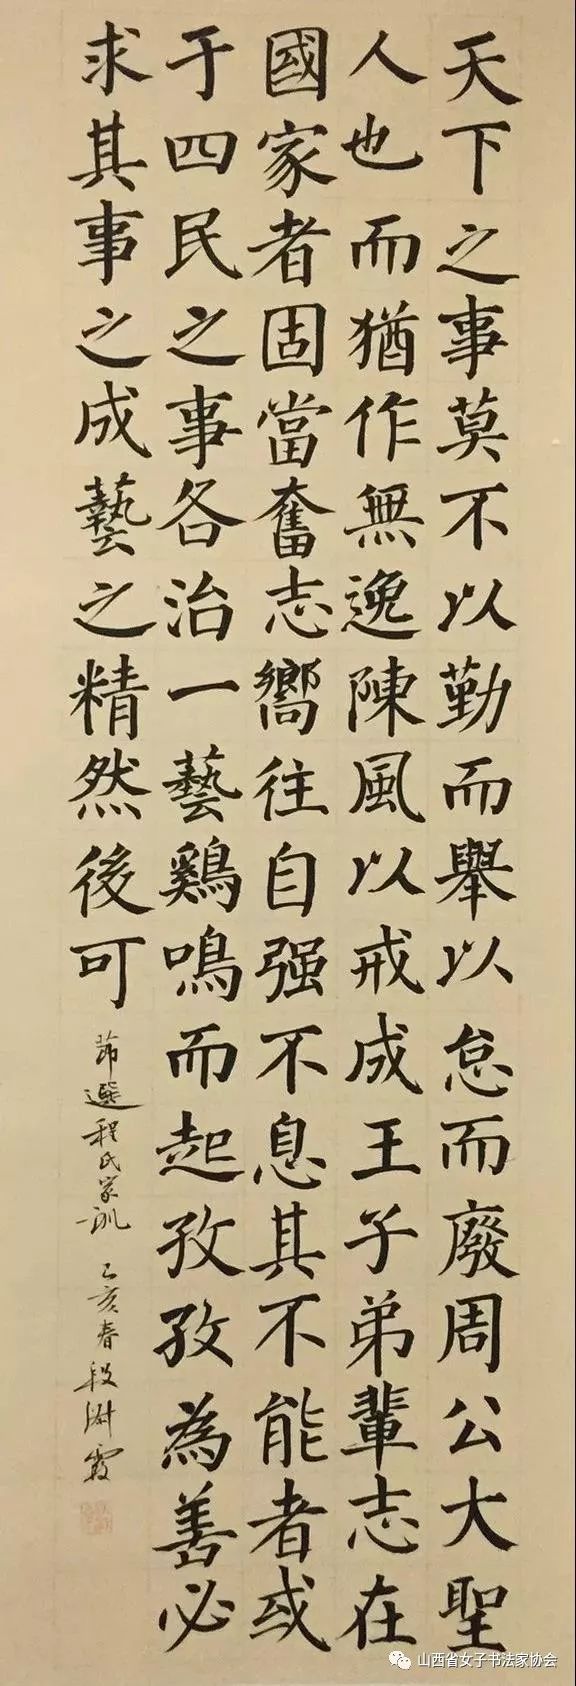 天下之事莫不以勤而舉以怠而廢周公大聖
人也而猶作無逸陳風以戒成王子弟輩志在
國家者固當奮志嚮往自强不息其不能者或
于四民之事各治一藝鷄鳴而起孜孜為善必
求其事之成藝之精然後可
節選程氏家訓 己亥春段淑霞
山西省女子书法家协会